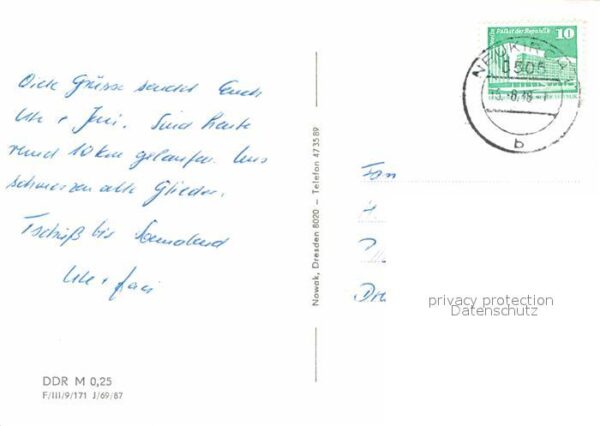 Viele Grüsse sendet Euch
Ute + Jeni. Sind heute
rund 10 km gelaufen. Uns
schmerzen alle Glieder.
Tschüß bis Sonnabend
Ute +
DDR M 0,25
F/III/9/171 J/69/87
Nowak, Dresden 8020 – Telefon 473589
Palast der Republik
10
0505
b
Fam
privacy protection
Datenschutz